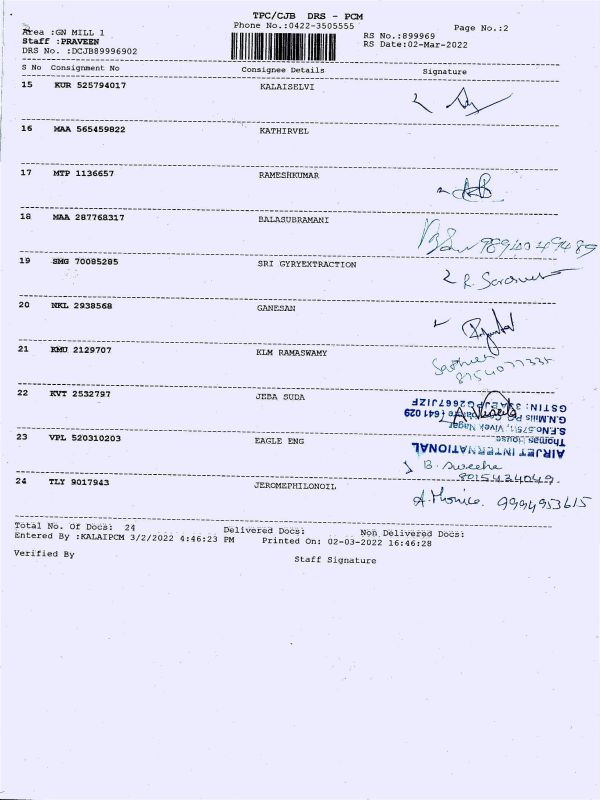 TPC/CJB DRS - PCM
Area :GN MILL 1 Phone No.:0422-3505555 Page No.:2
Staff :PRAVEEN RS No.:899969
DRS No. :DCJB89996902 RS Date:02-Mar-2022
S No Consignment No Consignee Details Signature
15 KUR 525794017 KALAISELVI
16 MAA 565459822 KATHIRVEL
17 MTP 1136657 RAMESHKUMAR
18 MAA 287768317 BALASUBRAMANI
9894049489
19 SMG 70085285 SRI GYRYEXTRACTION
20 NKL 2938568 GANESAN
21 RMU 2129707 KLM RAMASWAMY
22 KVT 2532797 JEBA SUDA
23 VPL 520310203 EAGLE ENG
AIRJET INTERNATIONAL
Thomas House
S.F.No.575/1, Vivek Nagar
B. Swetha
8015434049.
24 TLY 9017943 JEROMEPHILONOIL
A. Monica. 9994953615
Total No. Of Docs: 24 Delivered Docs: Non Delivered Docs:
Entered By :KALAIPCM 3/2/2022 4:46:23 PM Printed On: 02-03-2022 16:46:28
Verified By Staff Signature